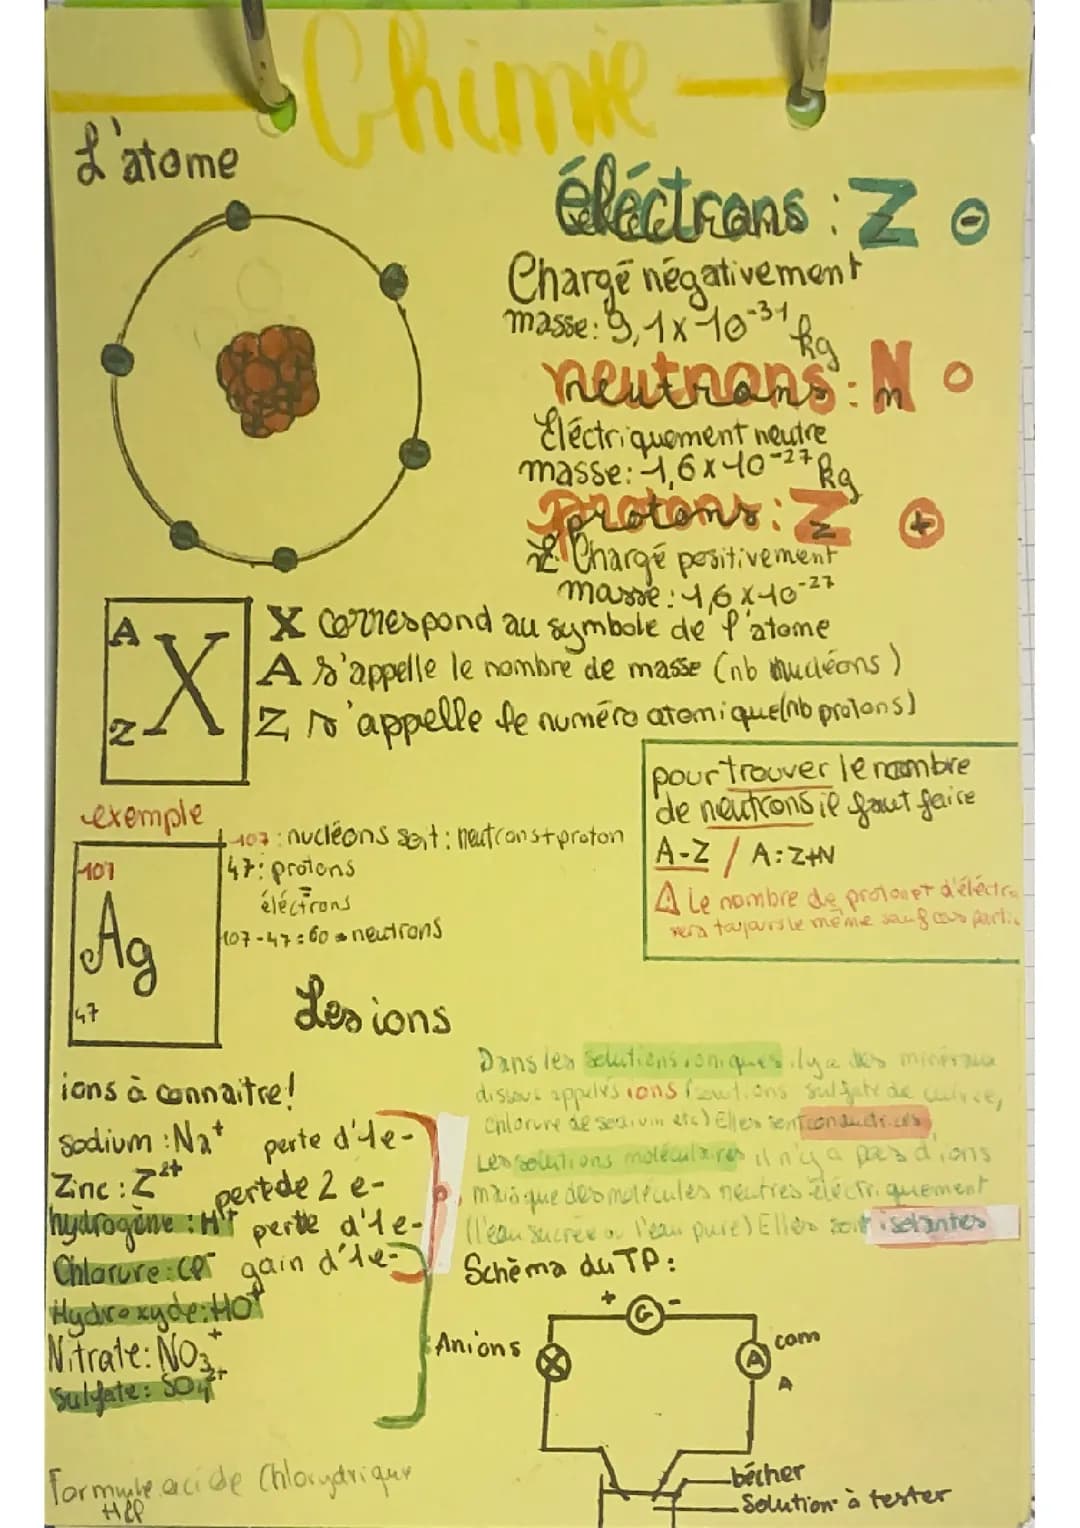 Chimie
L'atome
éléctrons : Z ⊖
Chargé négativement
masse: 9,1 x 10⁻³¹ kg
neutrons : N O
n
Éléctriquement neutre
masse: 1,6 x 10⁻²⁷ kg
protons : Z ⊕
Chargé positivement
masse : 1,6 x 10⁻²⁷
A
X
Z
X correspond au symbole de l'atome
A s'appelle le nombre de masse (nb nucléons)
Z s'appelle le numéro atomique (nb protons)
pour trouver le nombre
de neutrons il faut faire
A-Z / A=Z+N
⚠ Le nombre de proton et d'éléctr
sera toujours le même sauf cas partic
exemple
107
Ag
47
107 : nucléons soit : neutrons+proton
47: protons
=
éléctrons
107-47=60 neutrons
Les ions
ions à connaitre!
Sodium : Na⁺ perte d'1e-
Zinc : Z²⁺ perte de 2 e-
hydrogène : H⁺ perte d'1e-
Chlorure : Cl⁻ gain d'1e-
Hydroxyde: HO⁺
Nitrate: NO₃⁺
Sulfate: SO₄²⁺
Anions
Formule acide Chlorydrique
HCl
Dans les solutions ioniques il y a des minéraux
dissous appelés ions (solutions sulfate de cuivre,
chlorure de sodium etc) Elles sont conductrices
Les solutions moléculaires il n'y a pas d'ions
mais que des molécules neutres éléctriquement
(l'eau sucrée ou l'eau pure) Elles sont isolantes
Schèma du TP :
+ G -
A com
A
bécher
Solution à tester